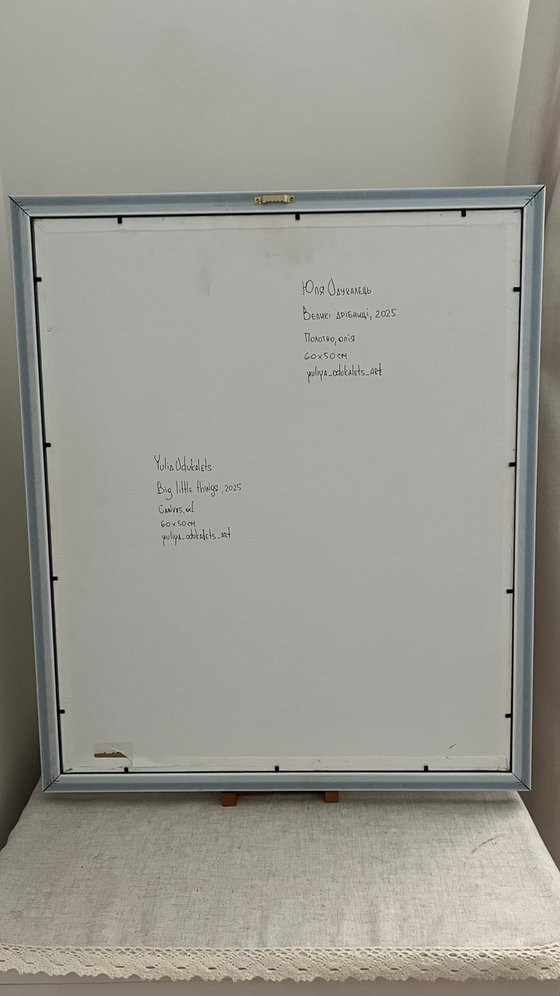 Юля Одукалець
Великі дрібниці, 2025
Полотно, олія
60x50 см
yuliya_odukalets_art
Yulia Odukalets
Big little things, 2025
Canvas, oil
60x50 cm
yuliya_odukalets_art